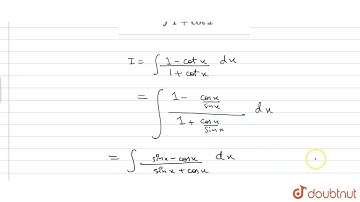 ∫ 1 + cot x
I = ∫ 1 - cot x / 1 + cot x dx
= ∫ 1 - cos x / sin x / 1 + cos x / sin x dx
= ∫ sin x - cos x / sin x + cos x dx
doubtnut